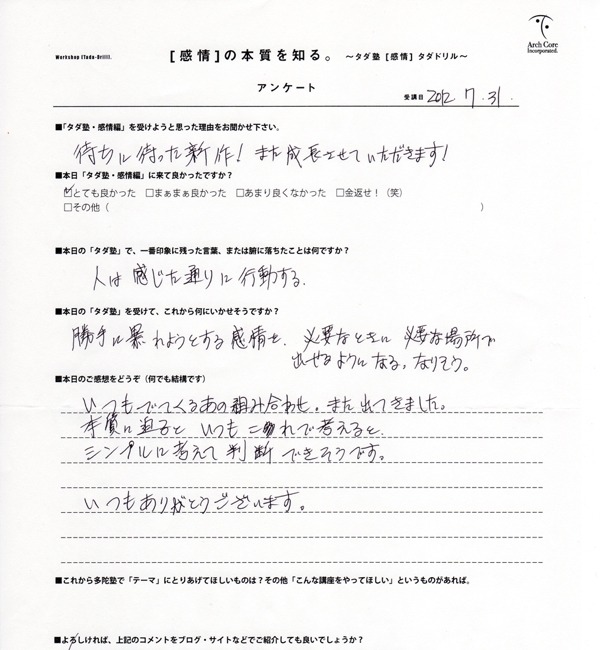 Arch Core
Incorporated.
Workshop [Tada-Drill].
[感情]の本質を知る。 〜タダ塾 [感情] タダドリル〜
アンケート
受講日 2012. 7. 31.
■「タダ塾・感情編」を受けようと思った理由をお聞かせ下さい。
待ちに待った新作! また成長させていただきます!
■本日「タダ塾・感情編」に来て良かったですか?
☑とても良かった □まぁまぁ良かった □あまり良くなかった □金返せ!(笑)
□その他( )
■本日の「タダ塾」で、一番印象に残った言葉、または腑に落ちたことは何ですか?
人は感じた通りに行動する.
■本日の「タダ塾」を受けて、これから何にいかせそうですか?
勝手に暴れようとする感情を、必要なときに必要な場所で
出せるようになる。なりそう。
■本日のご感想をどうぞ(何でも結構です)
いつもでてくるあの組み合わせ。また出てきました。
本質に迫ると いつも これで考えると、
シンプルに考えて判断できそうです。
いつもありがとうございます。
■これから多陀塾で「テーマ」にとりあげてほしいものは?その他「こんな講座をやってほしい」というものがあれば。
■よろしければ、上記のコメントをブログ・サイトなどでご紹介しても良いでしょうか?